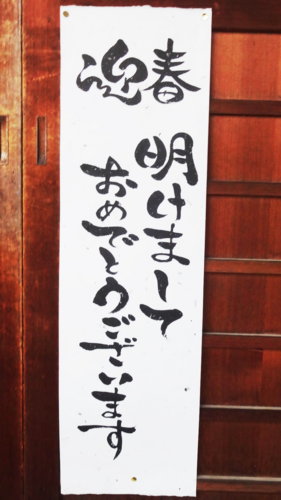 迎春
明けまして
おめでとうございます